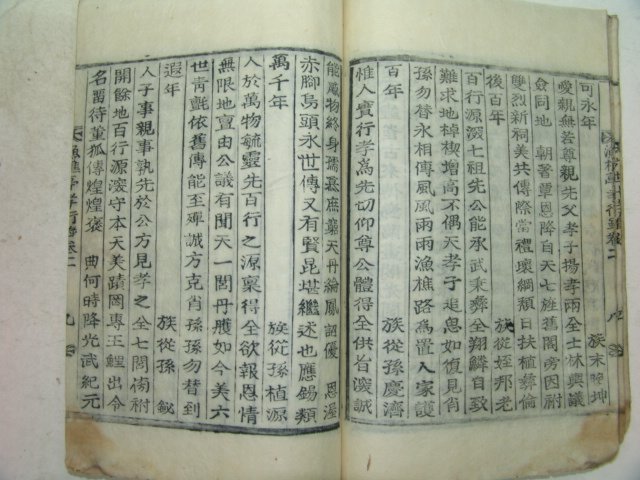 可永年 族末曔坤
愛親無若尊親先父子揚孝兩全士林興議
僉同地 朝著覃恩降自天七旌舊閣旁因附
雙烈新祠美共傳際當禮壞綱頹日扶植彛倫
後百年 族從姪邦老
百行源深七祖先公能承武秉彛全翔鱗自致
難求地棹楔增高不偶天孝子追思如復見肖
孫勿替永相傳風雨雨漁樵路爲置人家護
百年 族從孫慶濟
惟人實行孝爲先切仰尊公體得全供旨深誠
能風物終身孺哀庶藥天丹綸鳳詔優 恩渥
赤脚烏頭永世傳又有賢昆堪繼述也應錫類
萬千年 族從孫植源
人於萬物毓靈先百行之源稟得全欲報恩情
無限地亶由公議有聞天一閭丹雘如今美六
世靑氈依舊傳能至殫誠方克肖孫孫勿替到
遐年 族從孫 鉍
人子事親事孰先於公方見孝之全七閭傍附
開餘地百行源深守本天美蹟罔專王鯉出令
名留待董狐傳煌煌褒 典何時降光武紀元
漁樵亭孝行錄卷二 九